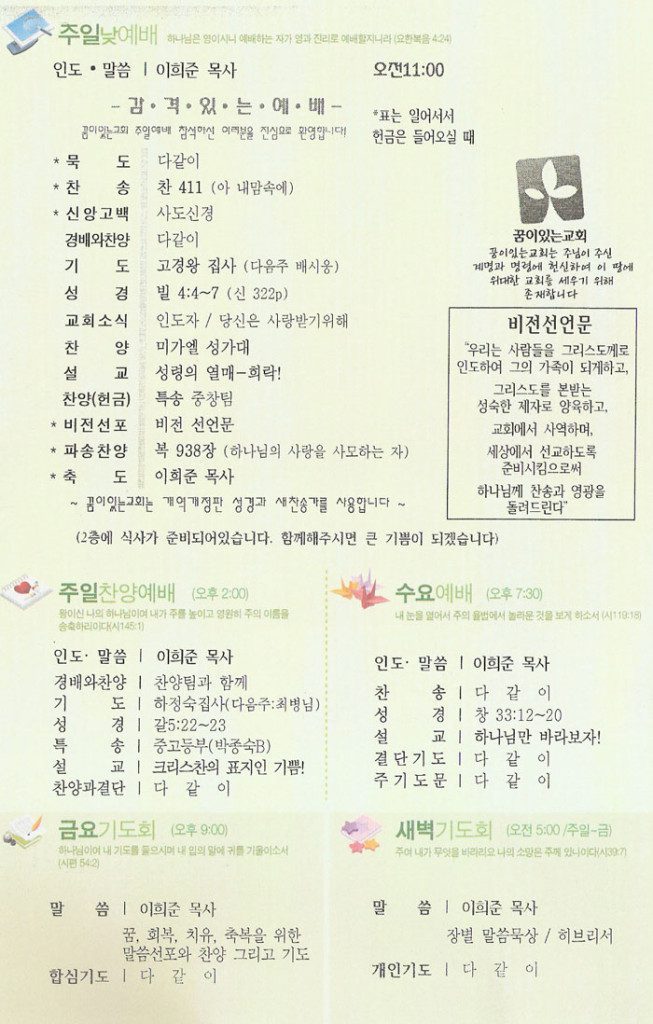 주일낮예배 하나님은 영이시니 예배하는 자가 영과 진리로 예배할지니라 (요한복음 4:24)
인도 • 말씀 | 이희준 목사 오전11:00
- 감 • 격 • 있 • 는 • 예 • 배 -
꿈이있는교회 주일예배 참석하신 여러분을 진심으로 환영합니다!
*표는 일어서서
헌금은 들어오실 때
* 묵 도 다같이
* 찬 송 찬 411 (아 내맘속에)
* 신앙고백 사도신경
경배와찬양 다같이
기 도 고경왕 집사 (다음주 배시웅)
성 경 빌 4:4~7 (신 322p)
교회소식 인도자 / 당신은 사랑받기위해
찬 양 미가엘 성가대
설 교 성령의 열매-희락!
찬양(헌금) 특송 중창팀
* 비전선포 비전 선언문
* 파송찬양 복 938장 (하나님의 사랑을 사모하는 자)
* 축 도 이희준 목사
~ 꿈이있는교회는 개역개정판 성경과 새찬송가를 사용합니다 ~
(2층에 식사가 준비되어있습니다. 함께해주시면 큰 기쁨이 되겠습니다)
꿈이있는교회
꿈이있는교회는 주님이 주신
계명과 명령에 헌신하여 이 땅에
위대한 교회를 세우기 위해
존재합니다
비전선언문
"우리는 사람들을 그리스도께로
인도하여 그의 가족이 되게하고,
그리스도를 본받는
성숙한 제자로 양육하고,
교회에서 사역하며,
세상에서 선교하도록
준비시킴으로써
하나님께 찬송과 영광을
돌려드린다"
주일찬양예배 (오후 2:00)
왕이신 나의 하나님이여 내가 주를 높이고 영원히 주의 이름을
송축하리이다(시145:1)
인도· 말씀 | 이희준 목사
경배와찬양 | 찬양팀과 함께
기 도 | 하정숙집사(다음주:최병님)
성 경 | 갈5:22~23
특 송 | 중고등부(박종숙B)
설 교 | 크리스찬의 표지인 기쁨!
찬양과결단 | 다 같 이
수요예배 (오후 7:30)
내 눈을 열어서 주의 율법에서 놀라운 것을 보게 하소서 (시119:18)
인도· 말씀 | 이희준 목사
찬 송 | 다 같 이
성 경 | 창 33:12~20
설 교 | 하나님만 바라보자!
결단기도 | 다 같 이
주기도문 | 다 같 이
금요기도회 (오후 9:00)
하나님이여 내 기도를 들으시며 내 입의 말에 귀를 기울이소서
(시편 54:2)
말 씀 | 이희준 목사
꿈, 회복, 치유, 축복을 위한
말씀선포와 찬양 그리고 기도
합심기도 | 다 같 이
새벽기도회 (오전 5:00 /주일-금)
주여 내가 무엇을 바라리요 나의 소망은 주께 있나이다(시39:7)
말 씀 | 이희준 목사
장별 말씀묵상 / 히브리서
개인기도 | 다 같 이